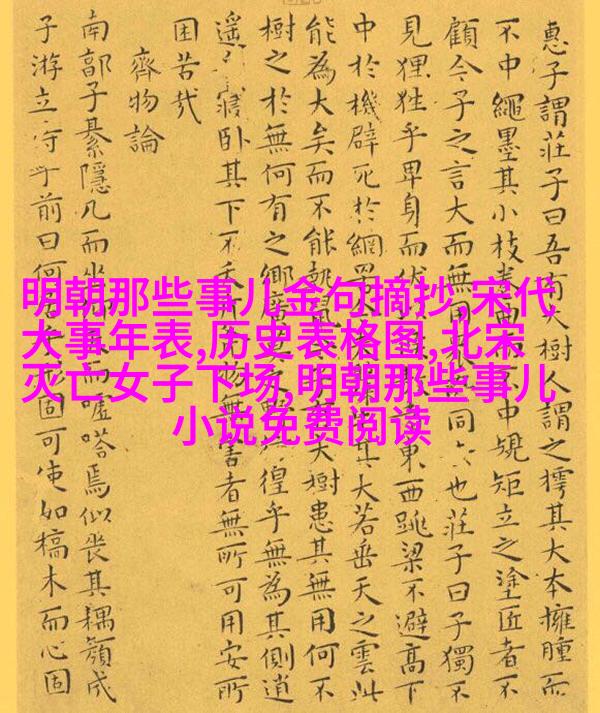 惠子謂莊子曰吾有大樹人謂之樗其大本擁腫而
不中繩墨其小枝而不中規矩立之塗匠者不
顧今子之言大而無用同也莊子曰子獨不
見狸狌乎卑身而伏東西跳梁不避高下
中於機辟死於網罟其大若垂天之雲此
能為大矣而不能執鼠大樹患其無用何不
樹之於無何有之鄉廣莫之野徨乎無為其側逍
遙寢卧其下不夭物無害者無所可用安所
困苦哉
齊物論
南郭子綦隱几而坐而噓嗒焉似喪其耦顏成
子游立侍乎前曰何居乎形固可使如槁木而心固
明朝那些事儿金句摘抄,宋代
大事年表,历史表格图,北宋
灭亡女子下场,明朝那些事儿
小说免费阅读